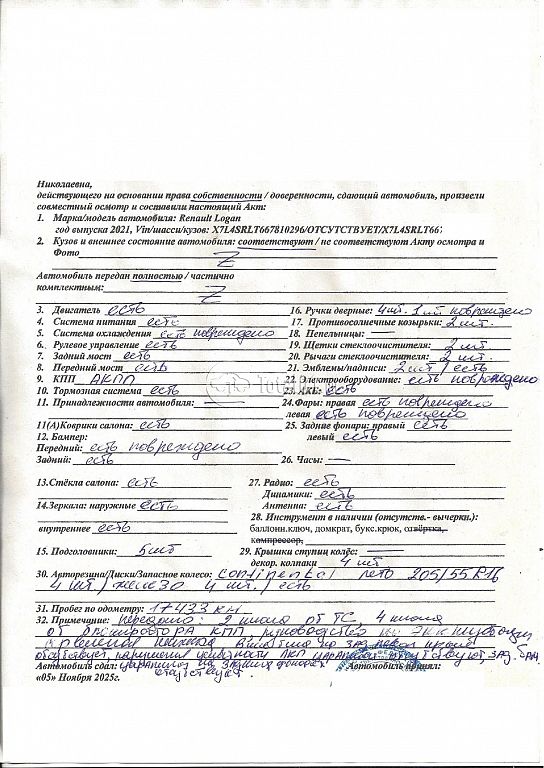 Николаевна,
действующего на основании права собственности / доверенности, сдающий автомобиль, произвели
совместный осмотр и составили настоящий Акт:
1. Марка/модель автомобиля: Renault Logan
год выпуска 2021, Vin/шасси/кузов: X7L4SRLT667810296/ОТСУТСТВУЕТ/X7L4SRLT667
2. Кузов и внешнее состояние автомобиля: соответствуют / не соответствуют Акту осмотра и
Фото Z
Автомобиль передан полностью / частично
комплектным: Z
3. Двигатель есть
4. Система питания есть
5. Система охлаждения есть повреждено
6. Рулевое управление есть
7. Задний мост есть
8. Передний мост есть
9. КПП АКПП
10. Тормозная система есть
11. Принадлежности автомобиля: —
11(А)Коврики салона: есть
12. Бампер:
Передний: есть повреждено
Задний: есть
13.Стёкла салона: есть
14.Зеркала: наружные есть
внутреннее есть
15. Подголовники: 5 шт
16. Ручки дверные: 4 шт. 1 шт повреждено
17. Противосолнечные козырьки: 2 шт.
18. Пепельницы: —
19. Щетки стеклоочистителя: 2 шт
20. Рычаги стеклоочистителя: 2 шт.
21. Эмблемы/надписи: 2 шт / есть
22. Электрооборудование: есть повреждено
23. АКБ: есть
24.Фары: правая есть повреждено
левая есть повреждено
25. Задние фонари: правый есть
левый есть
26. Часы: —
27. Радио: есть
Динамики: есть
Антенна: есть
28. Инструмент в наличии (отсутств.- вычеркн.):
баллонн.ключ, домкрат, букс.крюк, отвёртка,
компрессор,
29. Крышки ступиц колёс: —
декор. колпаки 4 шт
30. Авторезина/Диски/Запасное колесо: Continental лето 205/55 R16
4 шт / железо 4 шт. / есть
31. Пробег по одометру: 17433 км
32. Примечание: передано: 2 ключа от ТС, 4 ключа
от КПП, руководство по
отсутствует, нарушения ЛКП
Автомобиль сдал: царапины на задних фонарях Автомобиль принял:
«05» Ноября 2025г. отсутствуют.